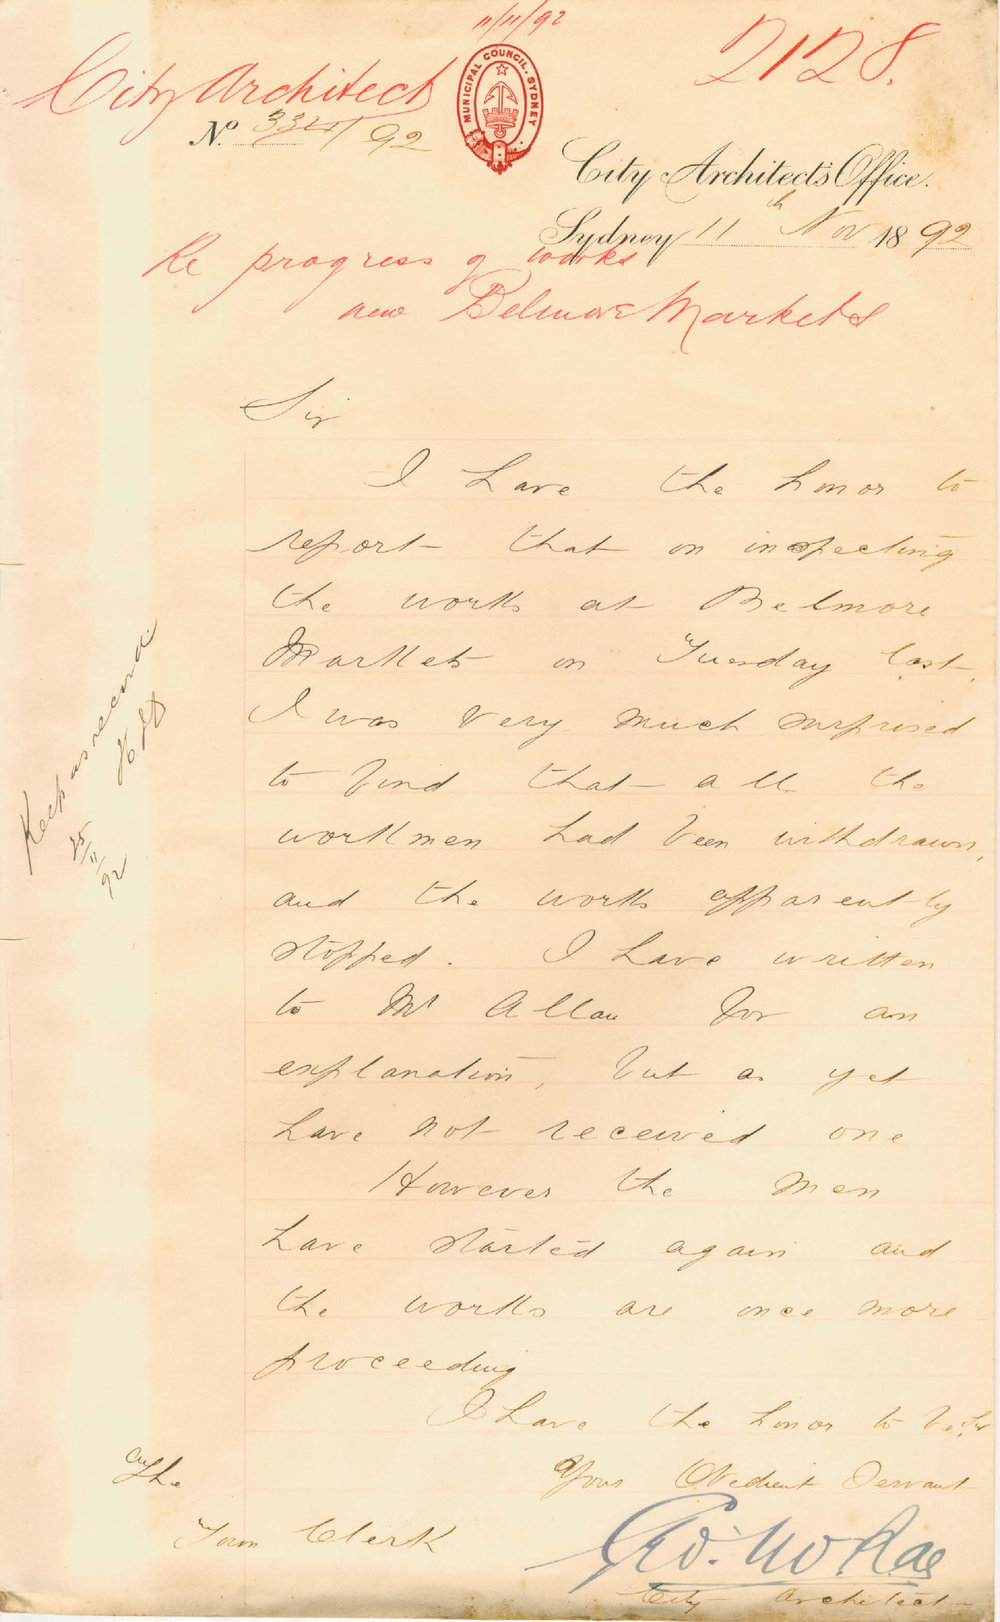 11/11/92
City Architect
2128.
MUNICIPAL COUNCIL. SYDNEY
No. 334/92
City Architect's Office.
Sydney 11th Nov 1892
Re progress of works
new Belmore Markets
Sir
I have the honor to
report that on inspecting
the works at Belmore
Markets on Tuesday last,
I was very much surprised
to find that all the
workmen had been withdrawn,
and the works apparently
stopped. I have written
to Mr Allan for an
explanation, but as yet
have not received one
However the men
have started again and
the works are once more
proceeding
I have the honor to be, Sir
Your Obedient Servant
Geo. McRae
City Architect
The
Town Clerk
Keep as record.
25/11/92